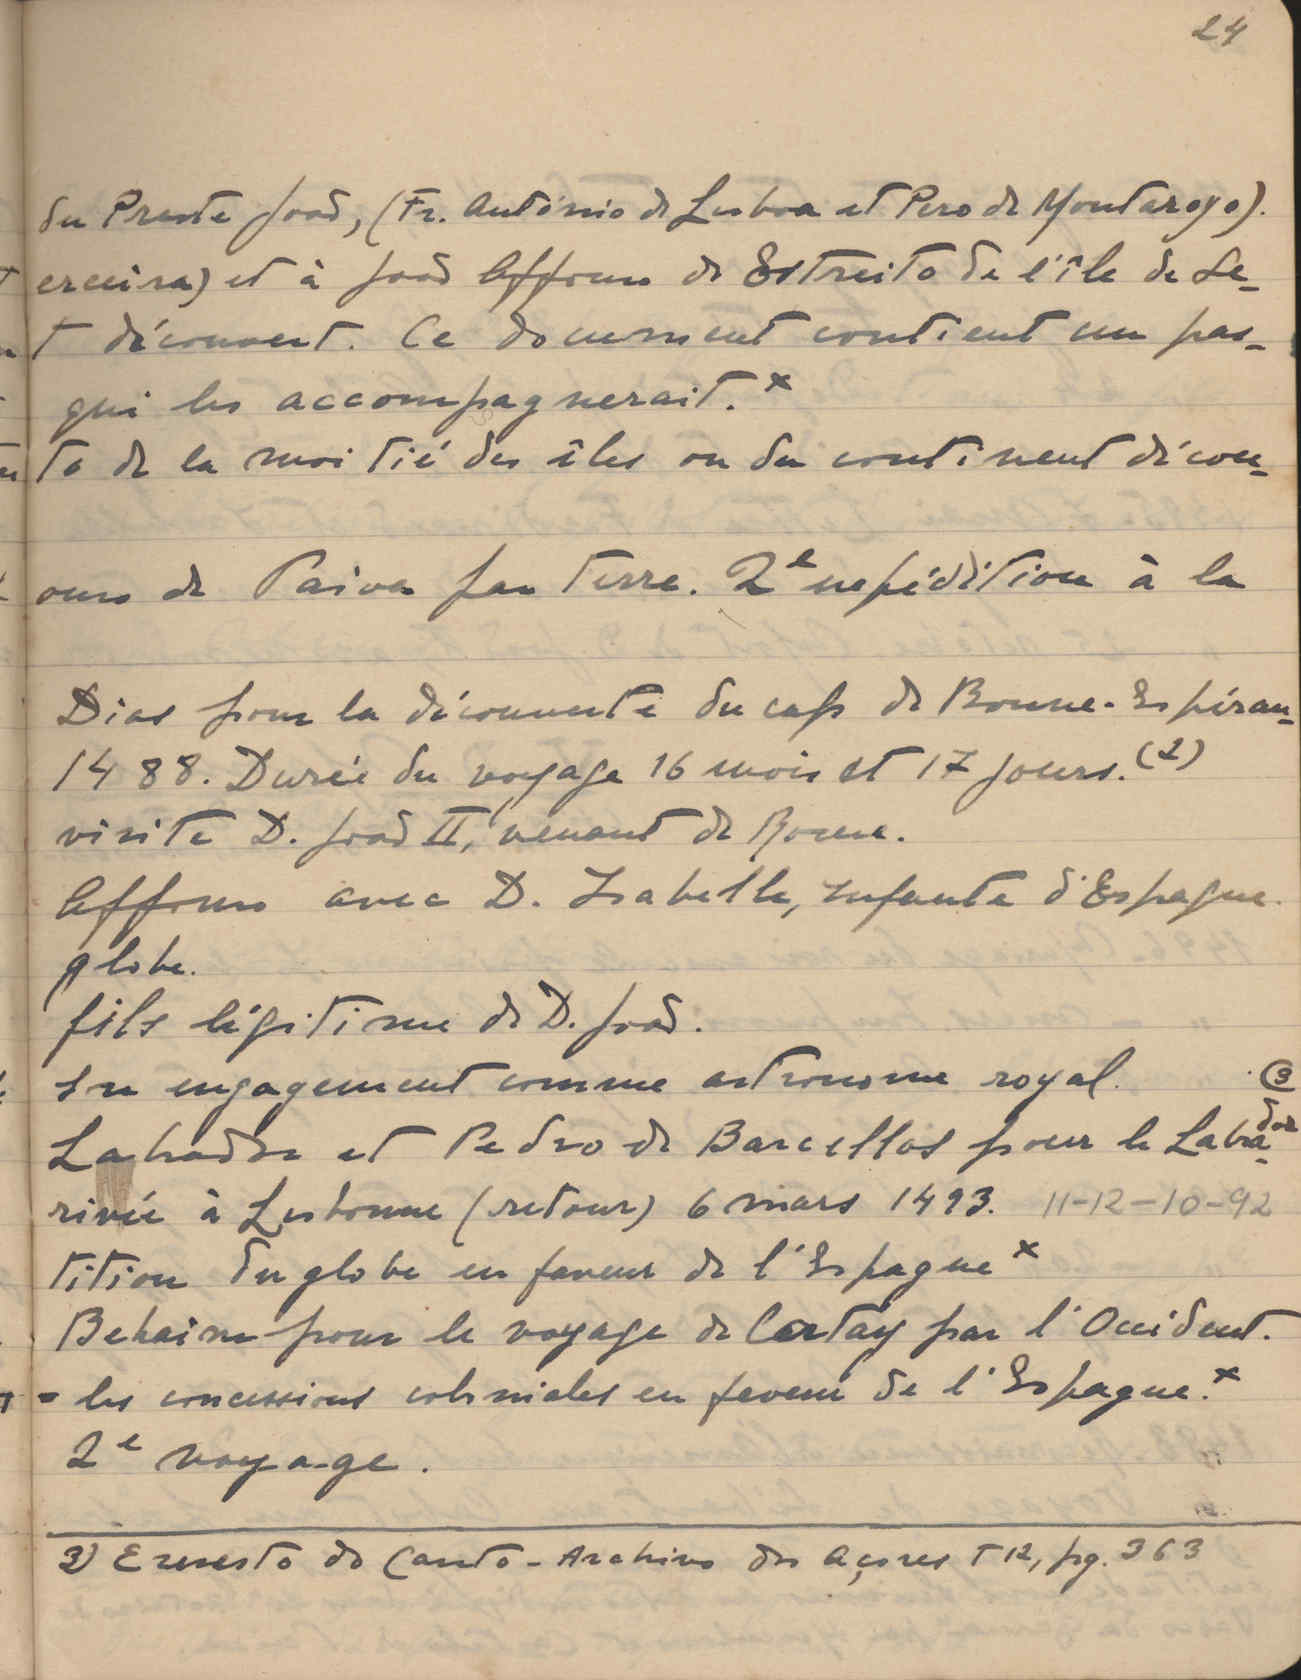 24
du Preste João, (Fr. António de Lisboa et Pero de Montaroyo).
erceira) et à João Affonso de Estreito de l'île de Se-
t découvert. Ce document contient un pas-
qui les accompagnerait.x
to de la moitié des îles ou du continent décou-
onso de Paiva par terre. 2e expédition à la
Dias pour la découverte du cap de Bonne-Espéran-
1488. Durée du voyage 16 mois et 17 jours.(2)
visite D. João II, venant de Rome.
Affonso avec D. Isabelle, infante d'Espagne.
globe.
fils légitime de D. João.
son engagement comme astronome royal. (3
Labrador et Pedro de Barcellos pour le Labra-dor
rivée à Lisbonne (retour) 6 mars 1493. 11-12-10-92
tition du globe en faveur de l'Espagne x
Behaim pour le voyage de Catay par l'Occident.
= les concessions coloniales en faveur de l'Espagne.x
2e voyage.
3) Ernesto do Canto - Archivo dos Açores T 12, pg. 363